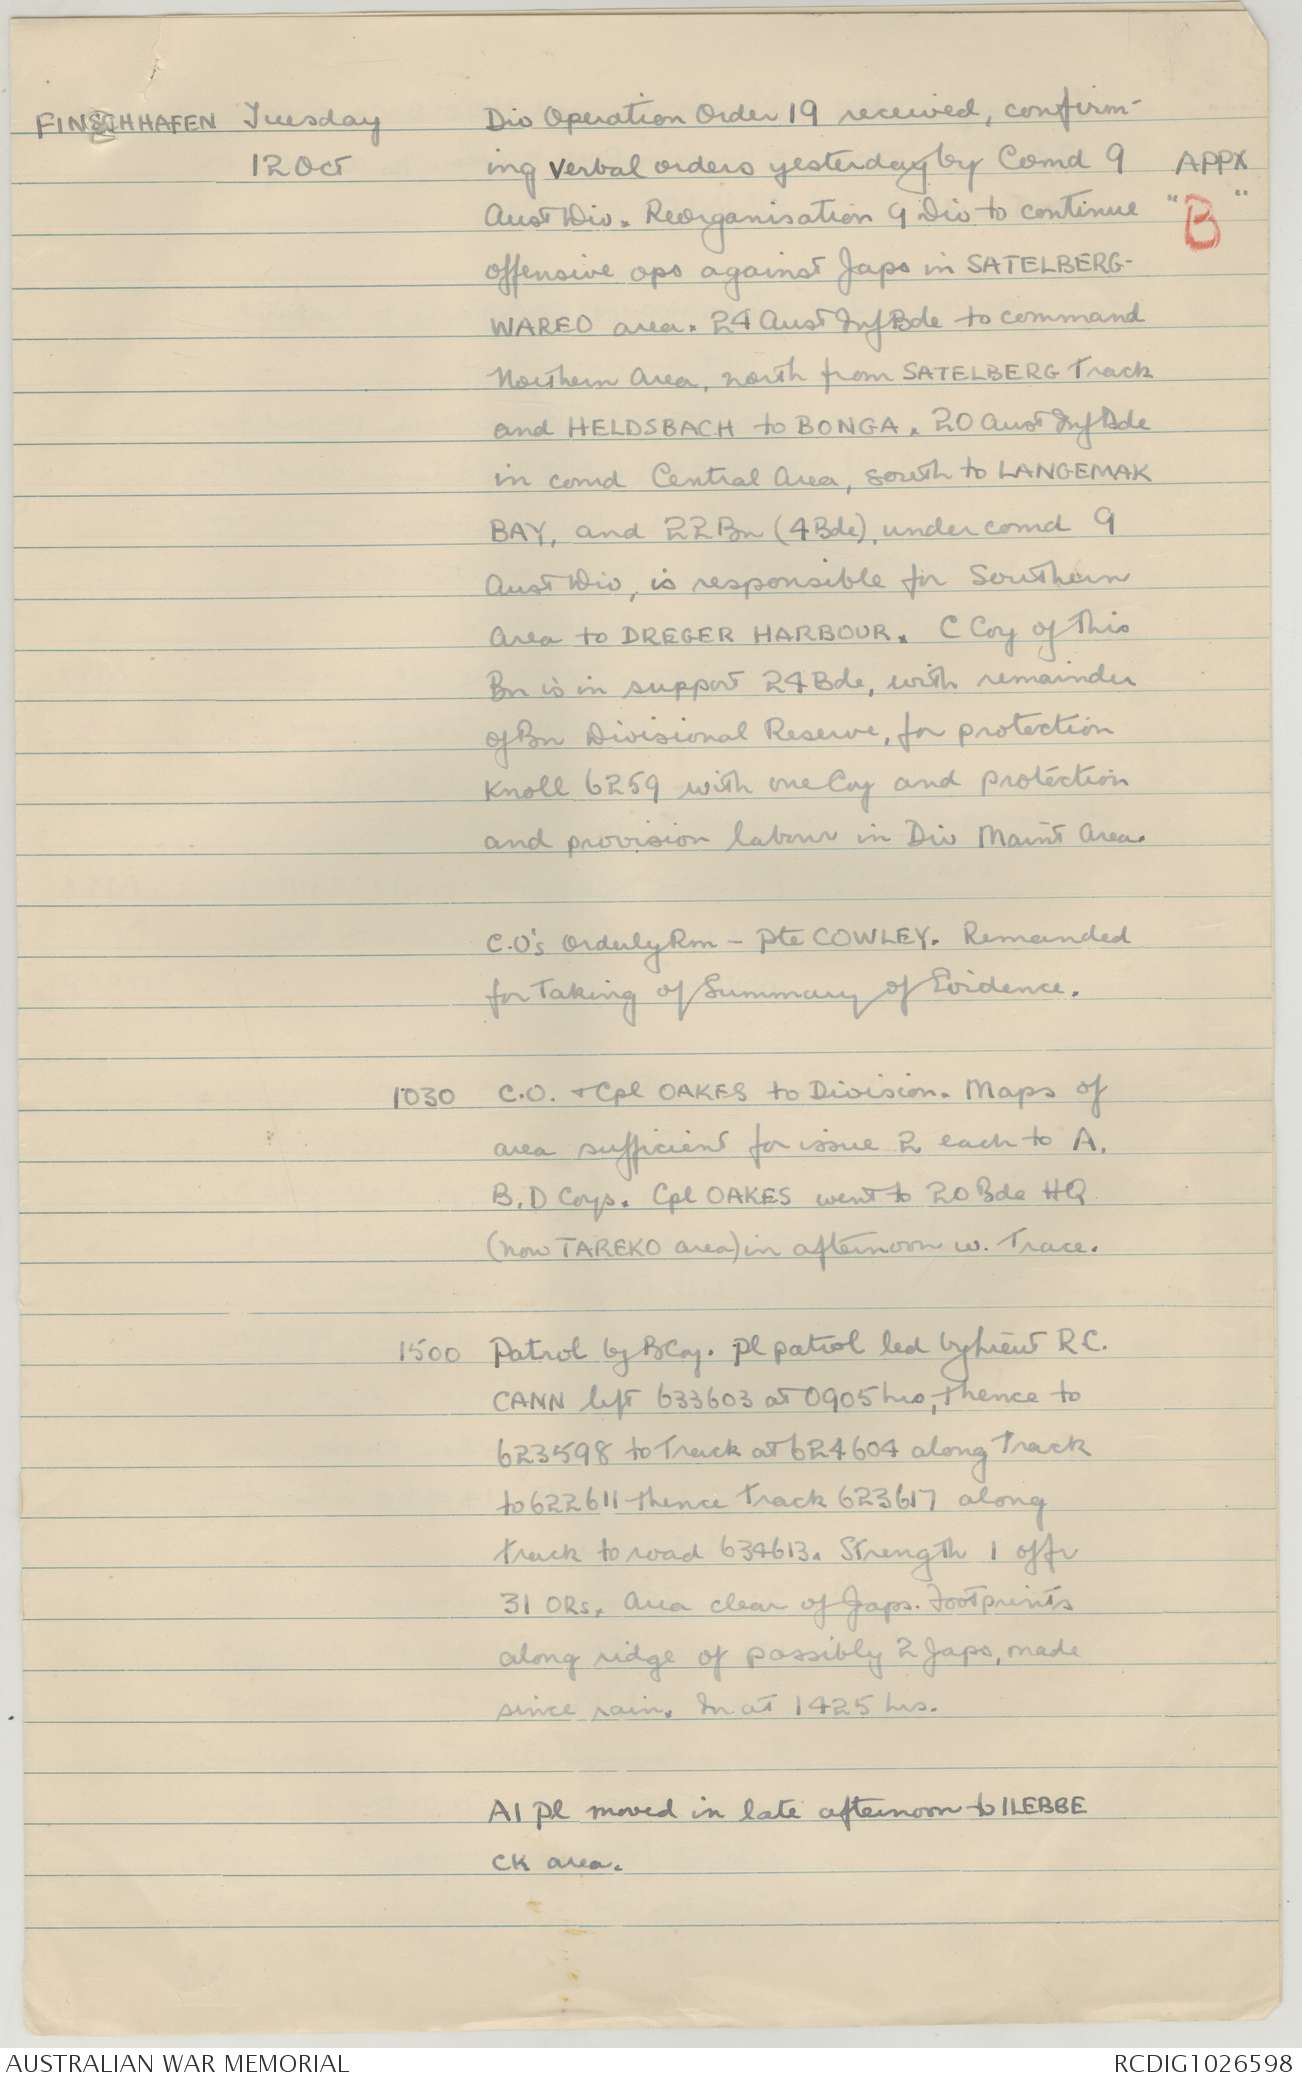 FINSCHHAFEN Tuesday Div Operation Order 19 received, confirm-
12 Oct ing verbal orders yesterday by Comd 9 APPX
Aust Div. Reorganisation 9 Div to continue "B"
offensive ops against Japs in SATELBERG-
WAREO area. 24 Aust Inf Bde to command
Northern Area, north from SATELBERG Track
and HELDSBACH to BONGA. 20 Aust Inf Bde
in comd Central Area, south to LANGEMAK
BAY, and 22 Bn (4 Bde), under comd 9
Aust Div, is responsible for Southern
Area to DREGER HARBOUR. C Coy of this
Bn is in support 24 Bde, with remainder
of Bn Divisional Reserve, for protection
Knoll 6259 with one Coy and protection
and provision labour in Div Maint Area.
C.O's Orderly Rm - Pte COWLEY. Remanded
for Taking of Summary of Evidence.
1030 C.O. + Cpl OAKES to Division. Maps of
area sufficient for issue 2 each to A,
B, D Coys. Cpl OAKES went to 20 Bde HQ
(now TAREKO area) in afternoon w. Trace.
1500 Patrol by B Coy. Pl patrol led by Lieut R.C.
CANN left 633603 at 0905 hrs, thence to
623598 to Track at 624604 along Track
to 622611 thence Track 623617 along
track to road 634613. Strength 1 offr
31 ORs. Area clear of Japs. Footprints
along ridge of possibly 2 Japs, made
since rain. In at 1425 hrs.
A1 Pl moved in late afternoon to ILEBBE
CK area.
AUSTRALIAN WAR MEMORIAL RCDIG1026598